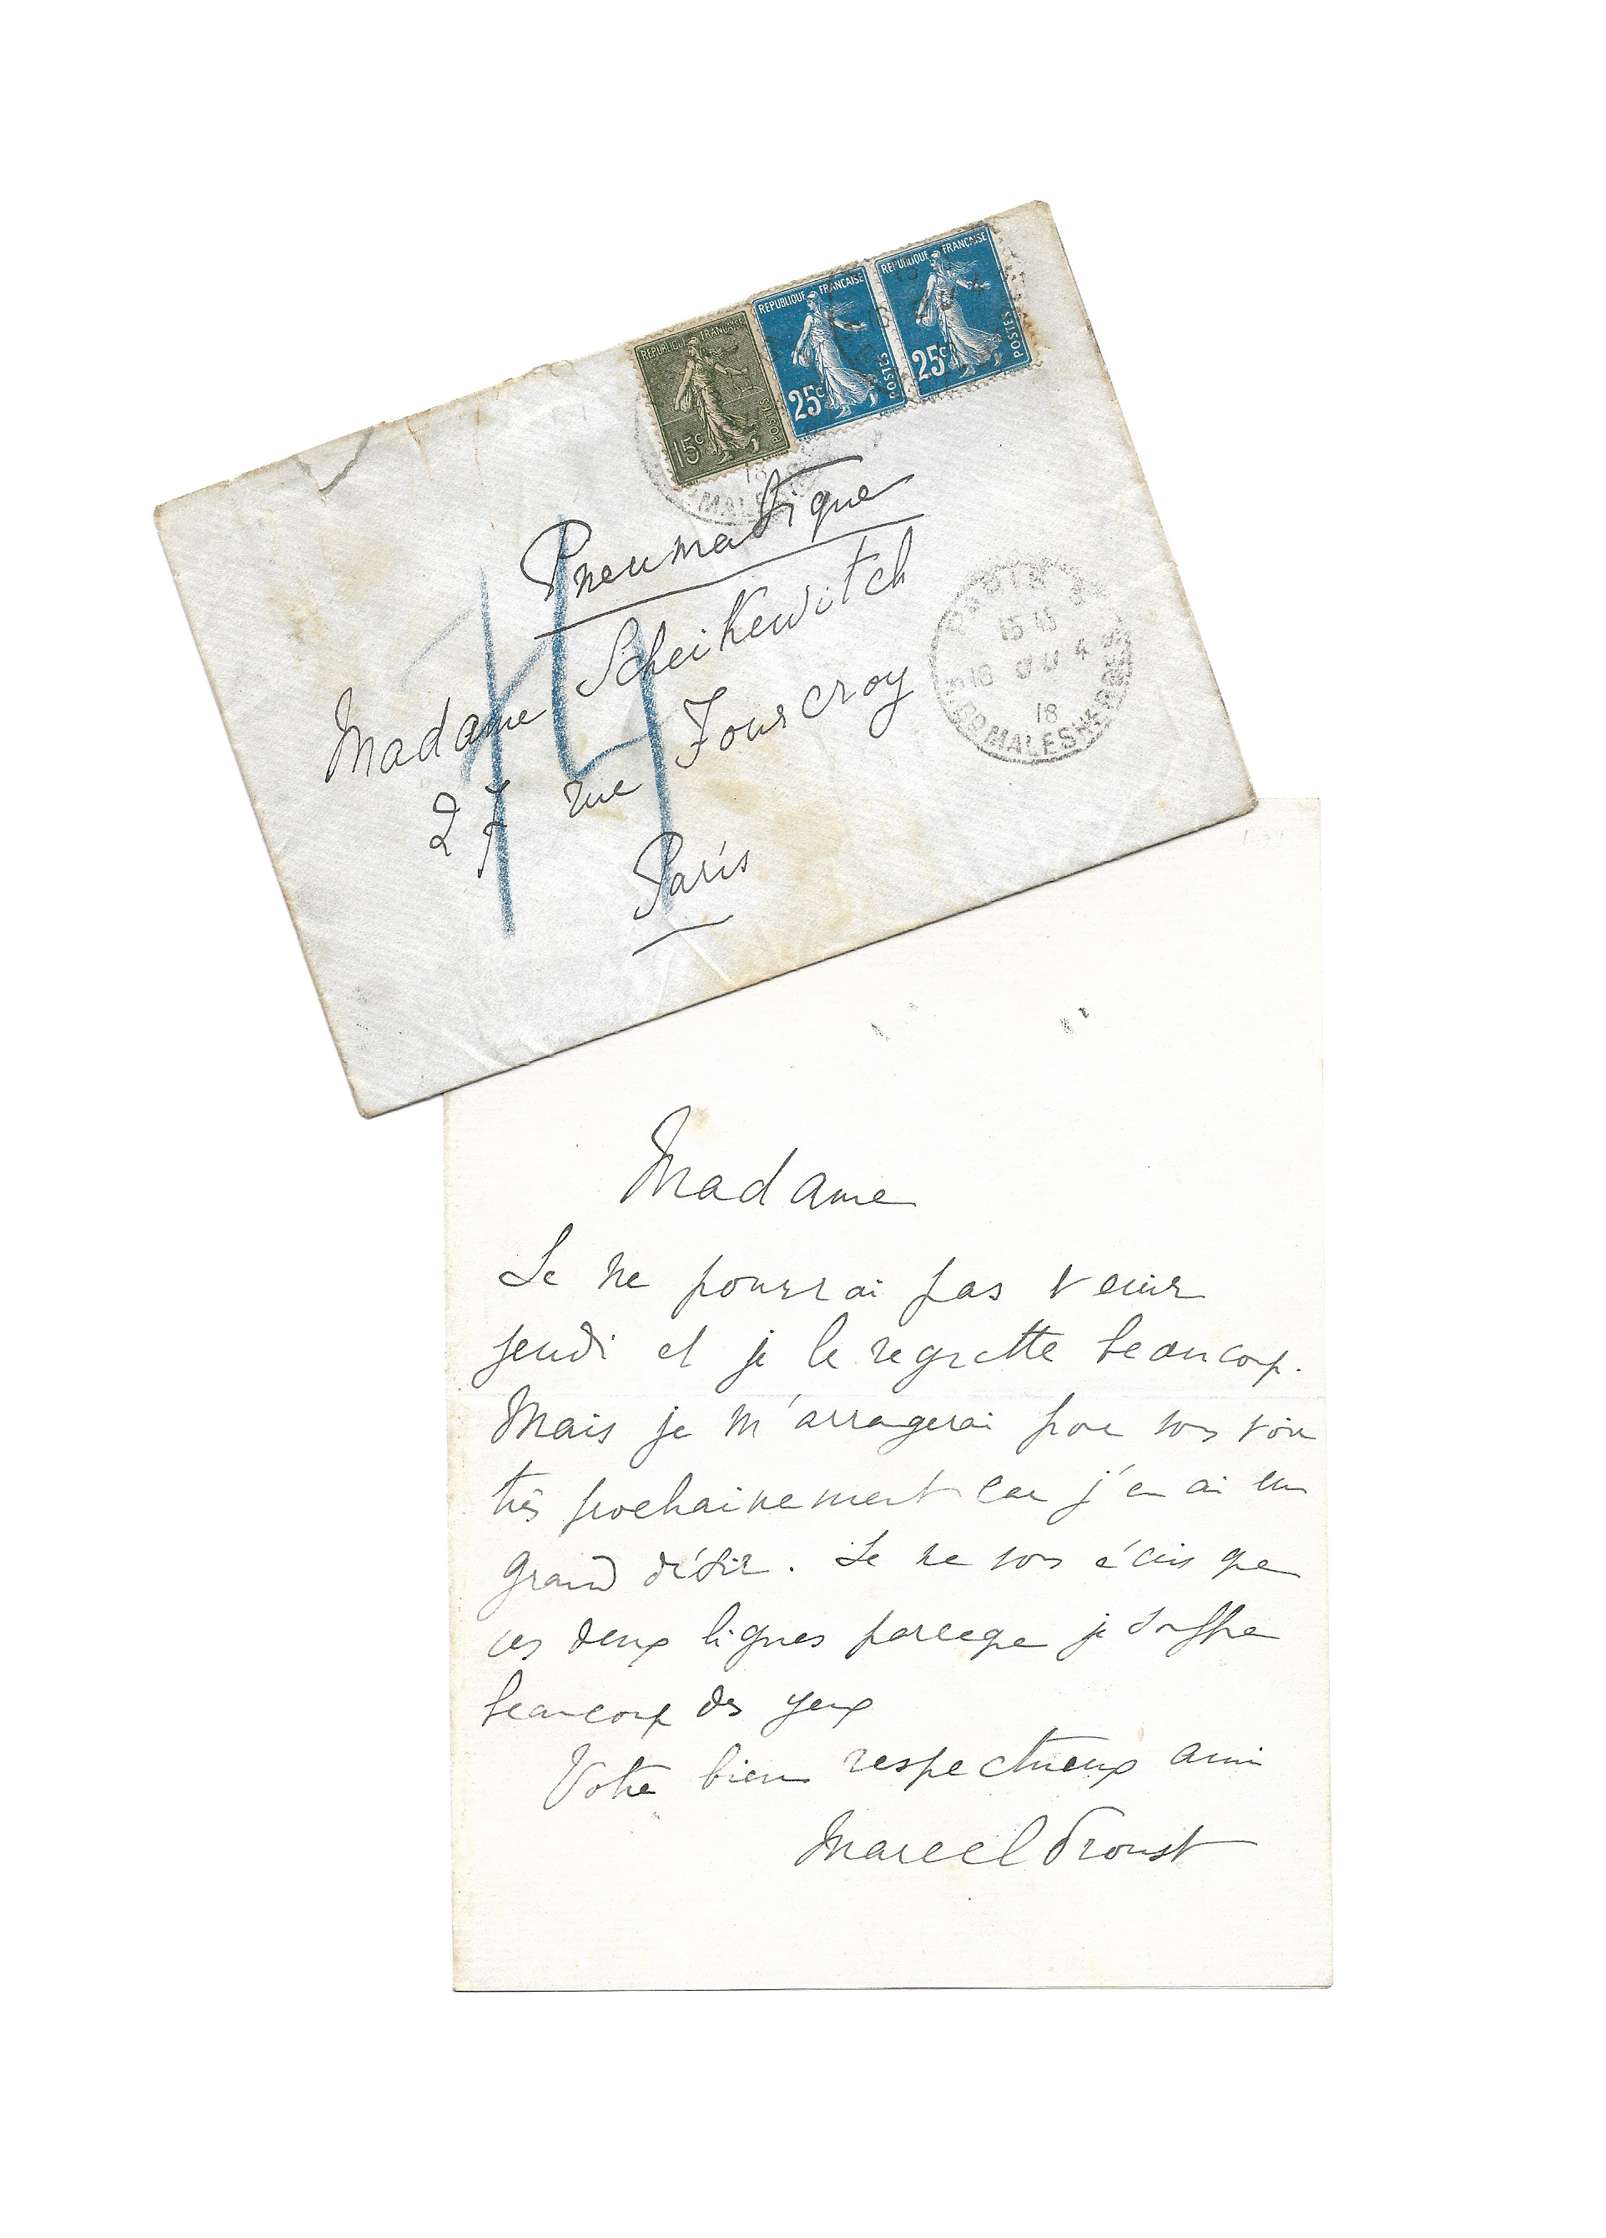 REPUBLIQUE FRANÇAISE
15c POSTES
REPUBLIQUE FRANÇAISE
25c POSTES
REPUBLIQUE FRANÇAISE
25c POSTES
Pneumatique
Madame Scheikewitch
27 rue Fourcroy
Paris
15 15
4
18
MALESHERBES
Madame
Je ne pourrai pas venir
jeudi et je le regrette beaucoup.
Mais je m'arrangerai pour vous voir
très prochainement car j'en ai un
grand désir. Je ne vous écris que
ces deux lignes parceque je souffre
beaucoup des yeux
Votre bien respectueux ami
Marcel Proust